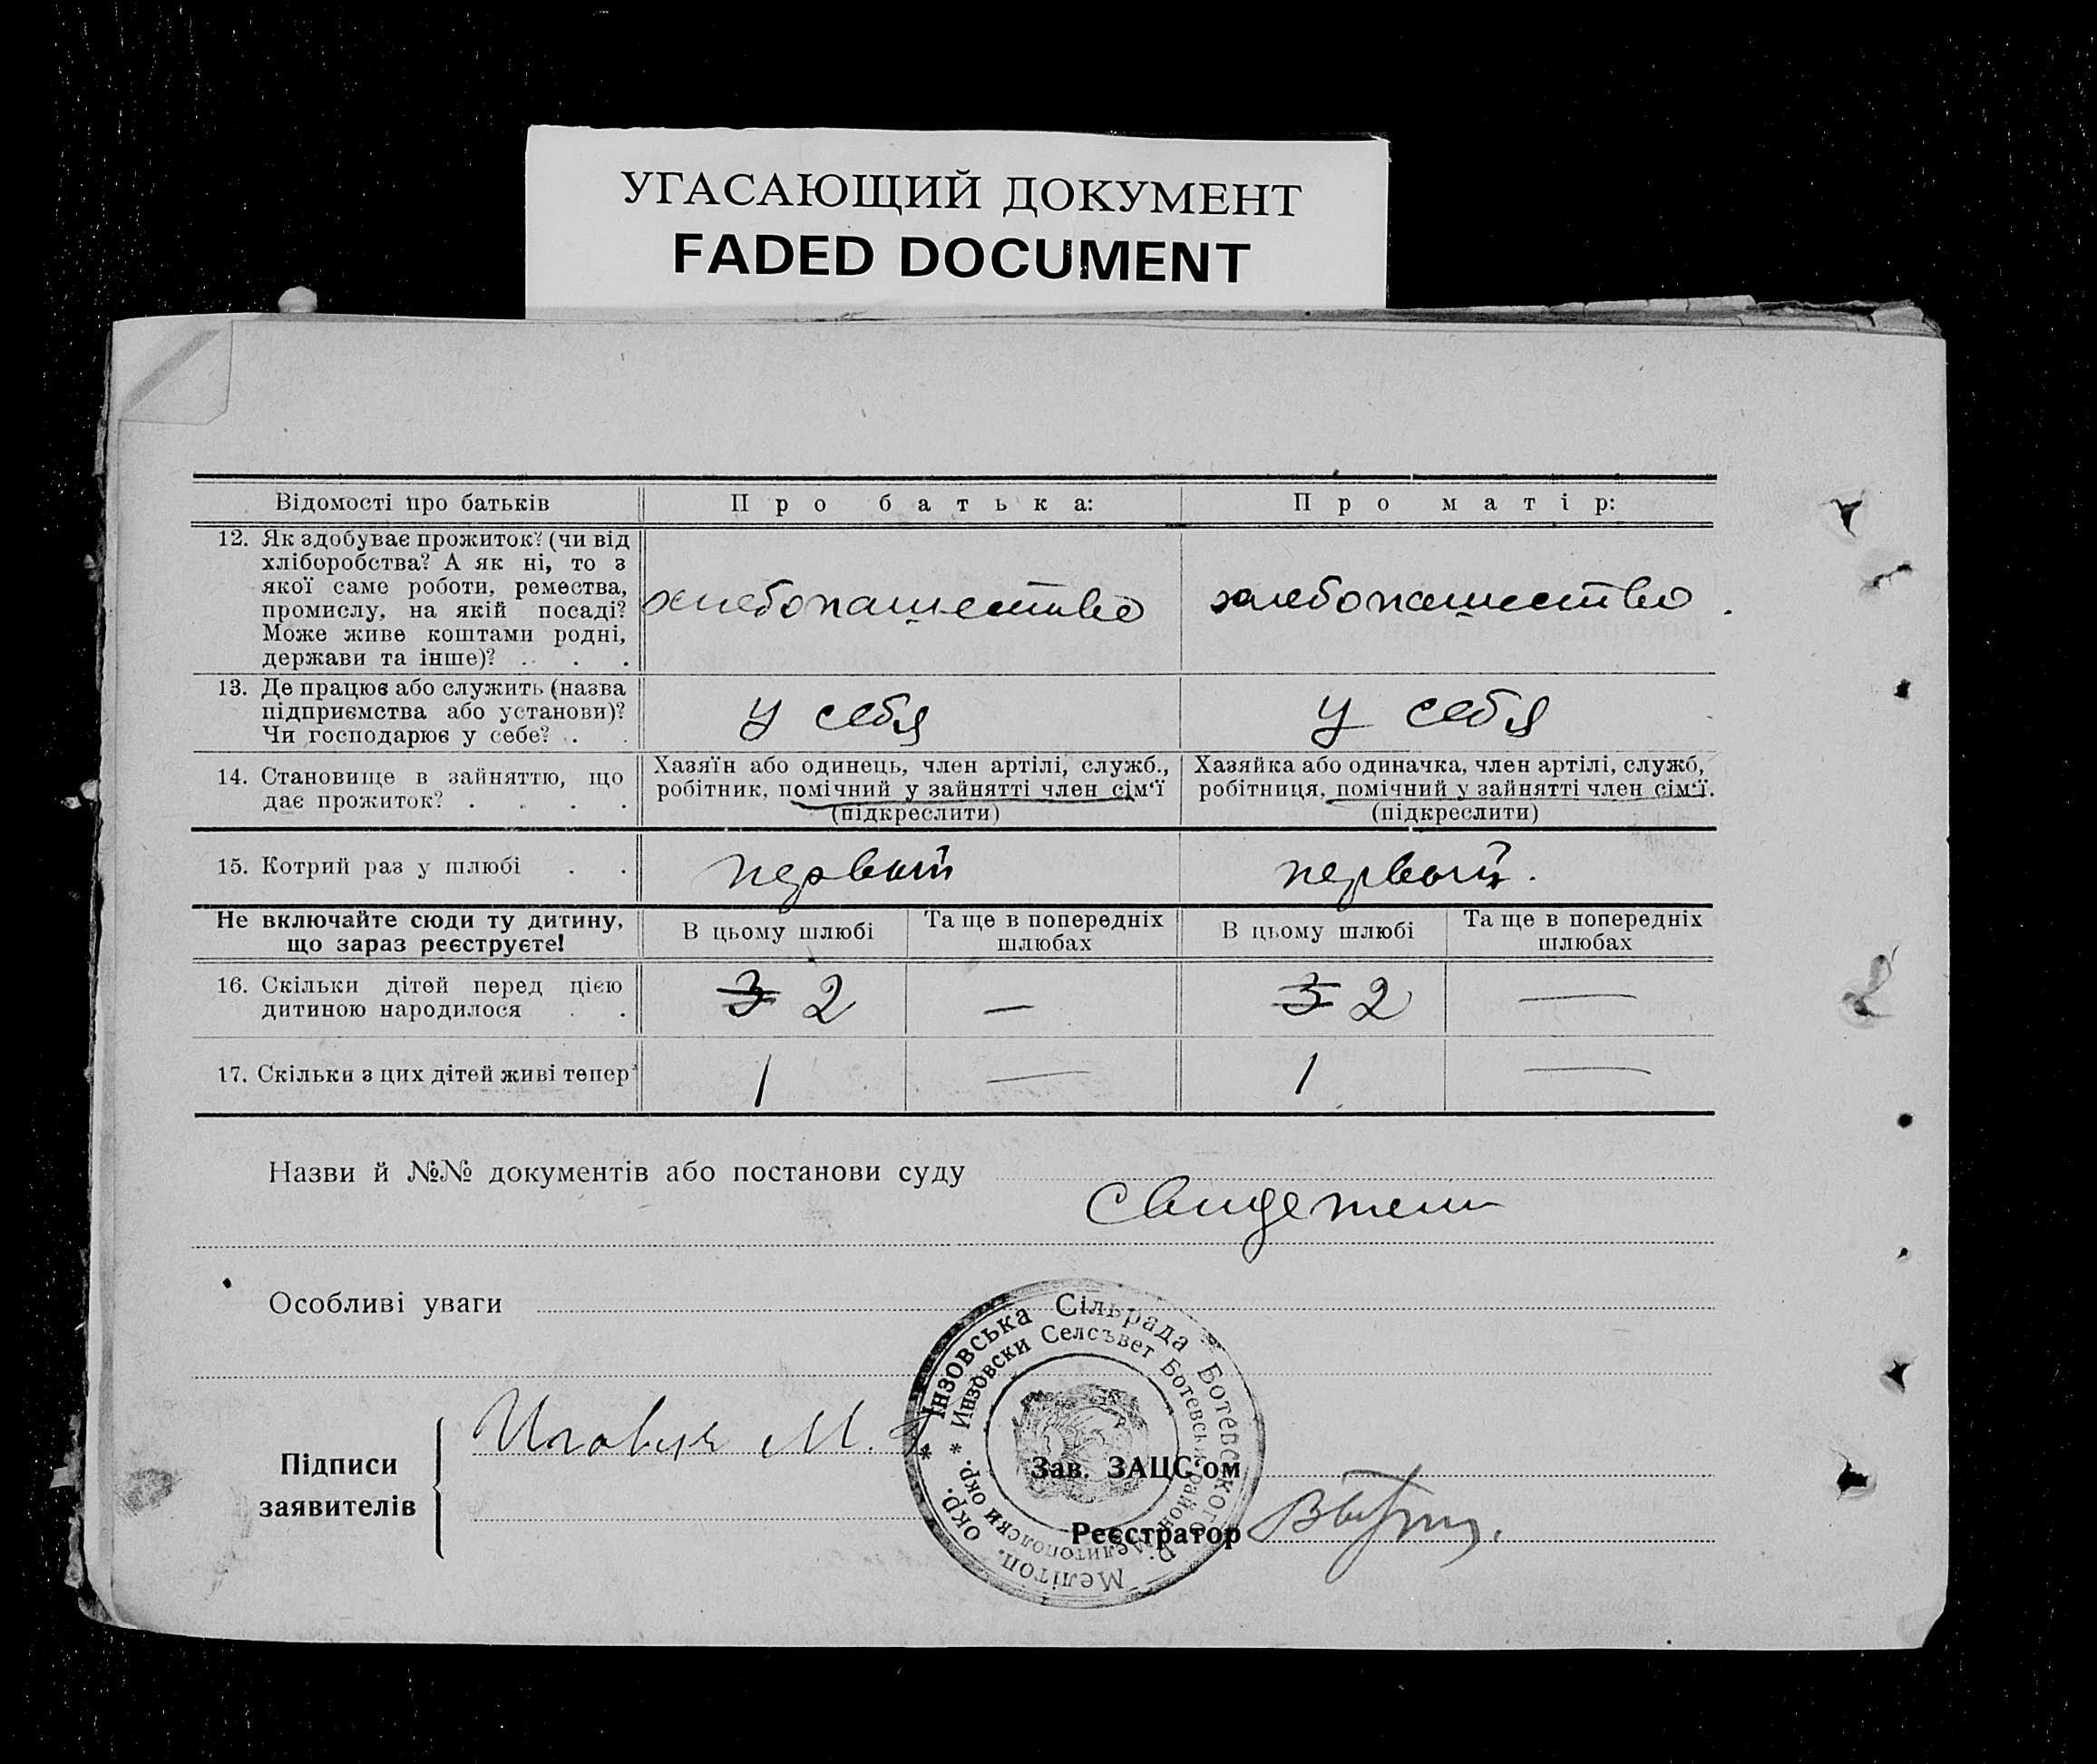 УГАСАЮЩИЙ ДОКУМЕНТ
FADED DOCUMENT
Відомості про батьків
Про батька:
Про матір:
12. Як здобуває прожиток? (чи від
хліборобства? А як ні, то з
якої саме роботи, ремества,
промислу, на якій посаді?
Може живе коштами родні,
держави та інше)? . . .
хлебопашество
хлебопашество.
13. Де працює або служить (назва
підприємства або установи)?
Чи господарює у себе? . .
у себя
у себя
14. Становище в зайняттю, що
дає прожиток? . . . .
Хазяїн або одинець, член артілі, служб.,
робітник, помічний у зайнятті член сім'ї
(підкреслити)
Хазяйка або одиначка, член артілі, служб,
робітниця, помічний у зайнятті член сім'ї.
(підкреслити)
15. Котрий раз у шлюбі . .
первый
первый.
Не включайте сюди ту дитину,
що зараз реєструєте!
В цьому шлюбі
Та ще в попередніх
шлюбах
В цьому шлюбі
Та ще в попередніх
шлюбах
16. Скільки дітей перед цією
дитиною народилося . .
3 2
—
3 2
—
17. Скільки з цих дітей живі тепер
1
—
1
—
Назви й №№ документів або постанови суду
Свидетели
Особливі уваги
Підписи
заявителів
М.
* Інзовська Сільрада Ботевського р. Мелітоп. окр.
* Инзовски Селсъвет Ботевски район Мелитополски окр.
Зав. ЗАЦС'ом
Реєстратор